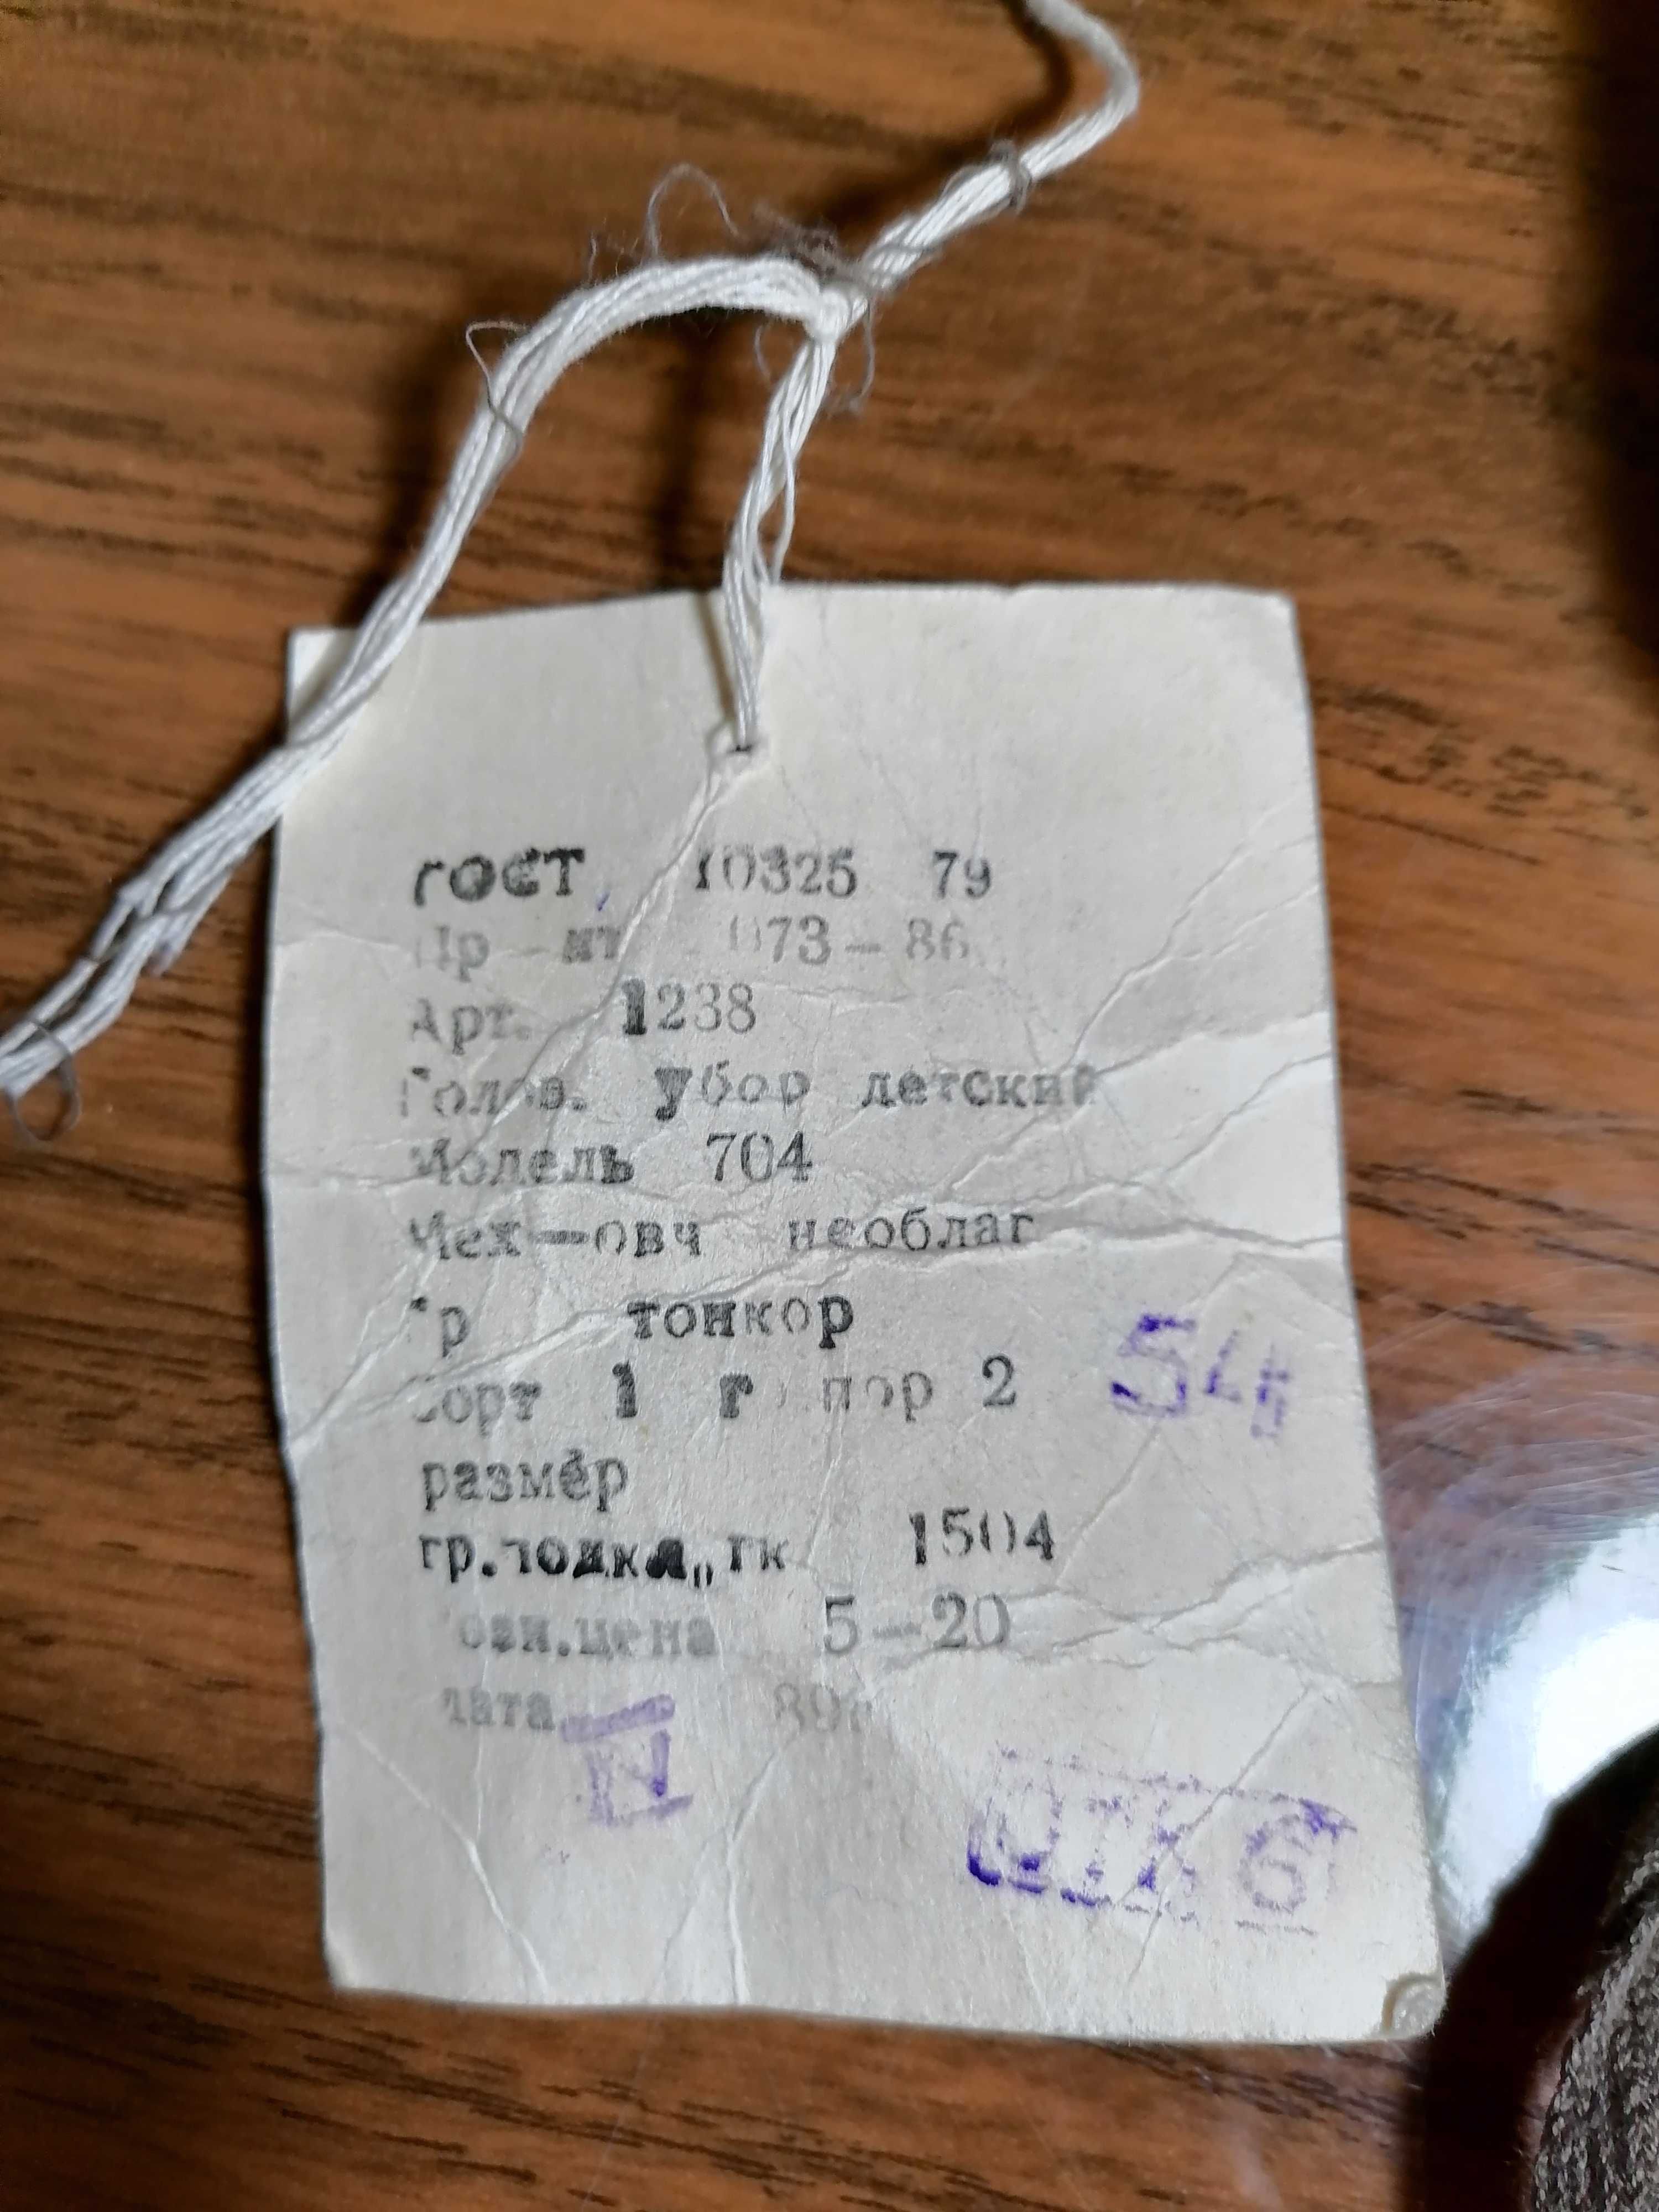 ГОСТ 10325 79
Пр-нт 073-86
Арт. 1238
Голов. убор детский
Модель 704
Мех-овч необлаг
Гр тонкор
Сорт 1 г пор 2
54
размер
гр. 1504
Розн.цена 5-20
Дата 89г
IV
ОТК 6